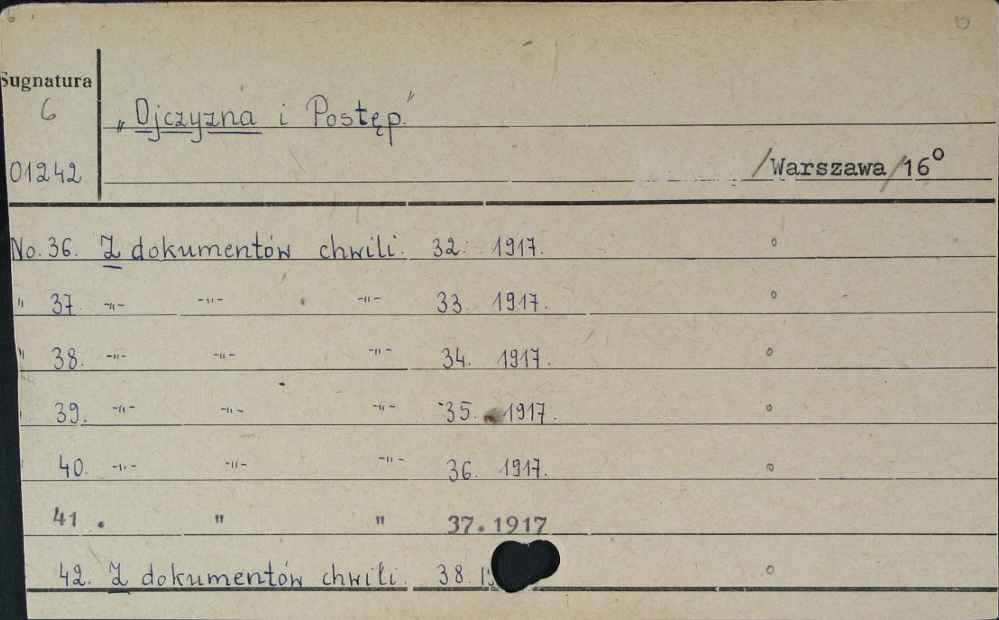 Sygnatura
6
„Ojczyzna i Postęp."
01242
/Warszawa/16°
No. 36. Z dokumentów chwili. 32. 1917. °
" 37. -"- -"- -"- 33. 1917. °
" 38. -"- -"- -"- 34. 1917. °
" 39. -"- -"- -"- 35. 1917. °
40. -"- -"- -"- 36. 1917. °
41. " " 37.1917
42. Z dokumentów chwili. 38. °